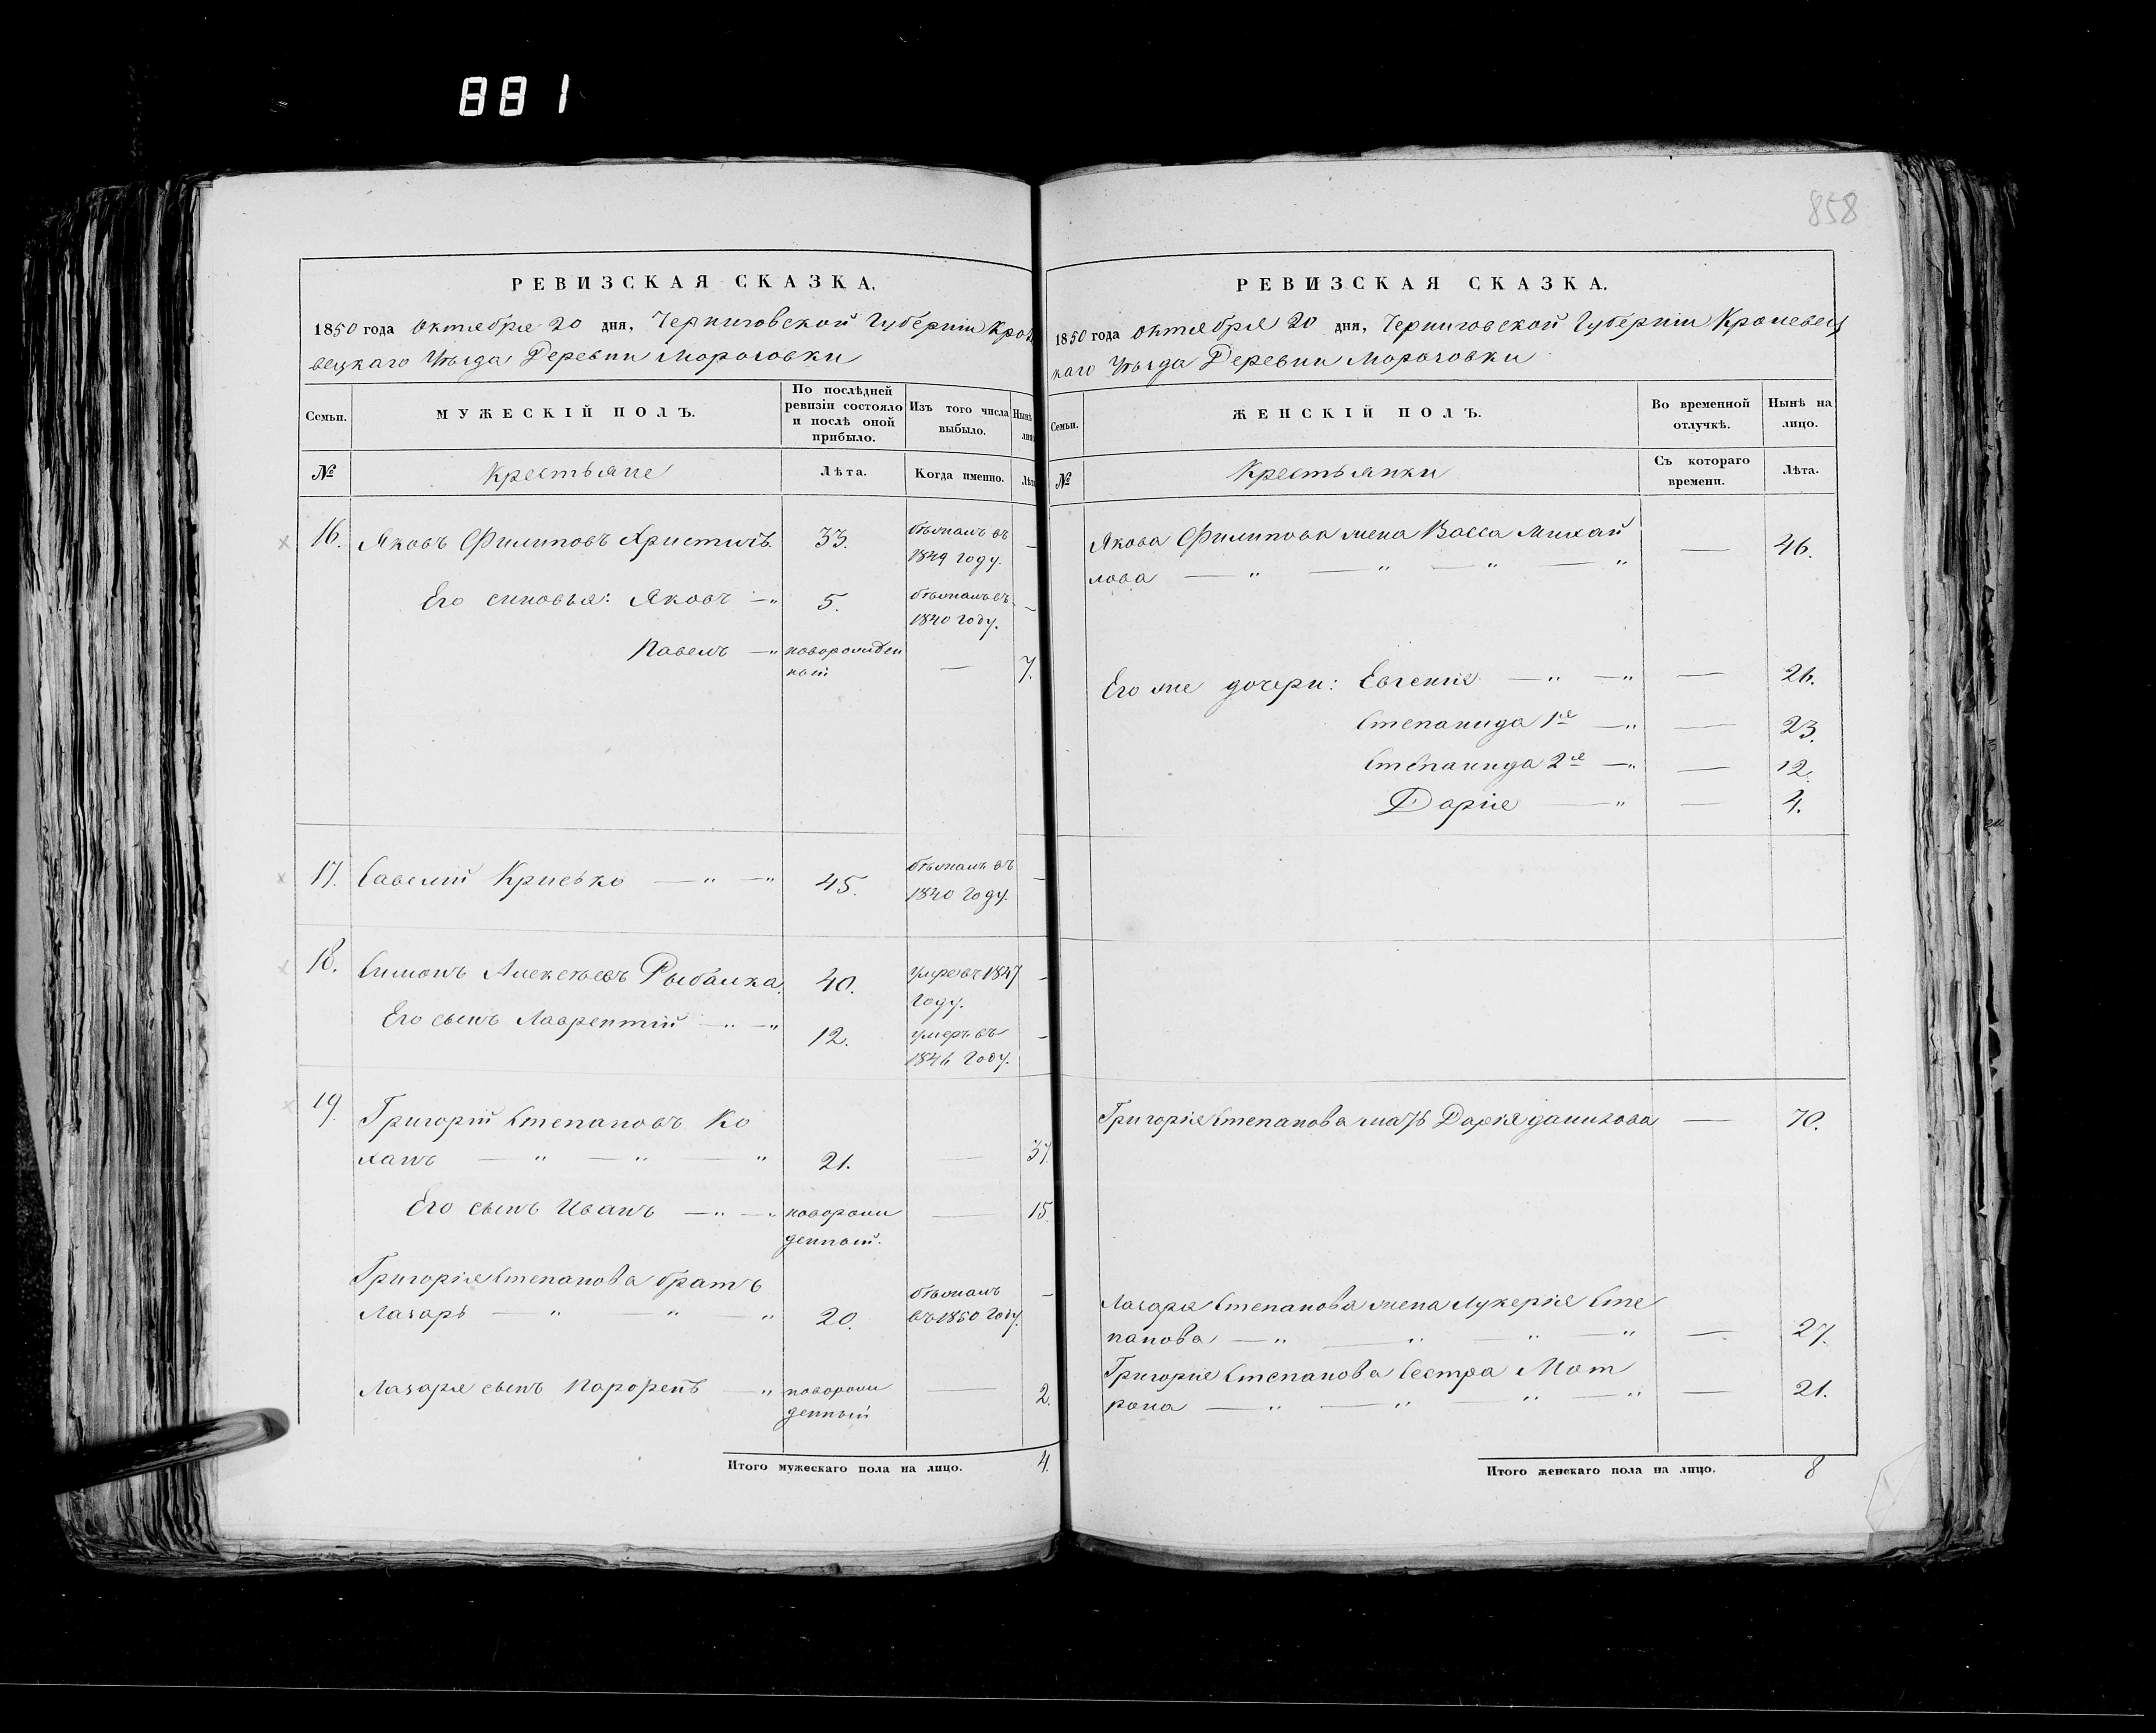 881
858
РЕВИЗСКАЯ СКАЗКА.
1850 года Октября 20 дня, Черниговской Губерніи Кроле
вецкаго Уѣзда Деревни Морочовки
Семьи. МУЖЕСКІЙ ПОЛЪ. По послѣдней ревизіи состояло и послѣ оной прибыло. Изъ того числа выбыло. Нынѣ на лицо.
№ Крестьяне Лѣта. Когда именно. Лѣта
16. Яковъ Филиповъ Христичъ 33. бѣжалъ въ —
1849 году.
Его синовья: Яковъ —〃 5. бѣжалъ въ —
1840 году.
Павелъ —〃 новорожден — 7.
ный
17. Савелій Кривко —〃 —〃 45. бѣжалъ въ —
1840 году.
18. Симонъ Алексѣевъ Рыбалка 40. умре въ 1847 —
году.
Его сынъ Лаврентій —〃 —〃 12. умеръ въ —
1846 году.
19. Григорій Степановъ Ко
ханъ —〃 —〃 —〃 21. — 37.
Его сынъ Иванъ —〃 —〃 новорож — 15.
денный.
Григорія Степанова братъ бѣжалъ —
Лазарь —〃 —〃 —〃 20. въ 1850 году.
Лазаря сынъ Парфенъ —〃 новорож — 2.
денный
Итого мужескаго пола на лицо. 4.
РЕВИЗСКАЯ СКАЗКА.
1850 года Октября 20 дня, Черниговской Губерніи Кролевец
каго Уѣзда Деревни Морочовки
Семьи. ЖЕНСКІЙ ПОЛЪ. Во временной отлучкѣ. Нынѣ на лицо.
№ Крестьянки Съ котораго времени. Лѣта.
Якова Филипова жена Васса Михай — 46.
лова —〃 —〃 —〃 —〃
Его же дочери: Евгенія —〃 —〃 — 26.
Степанида 1я —〃 — 23.
Степанида 2я —〃 — 12.
Дарія —〃 — 4.
Григорія Степанова мать Дарія Данилова — 70.
Лазаря Степанова жена Лукерія Сте
панова —〃 —〃 —〃 —〃 — 27.
Григорія Степанова Сестра Мот
рона —〃 —〃 —〃 —〃 — 21.
Итого женскаго пола на лицо. 8